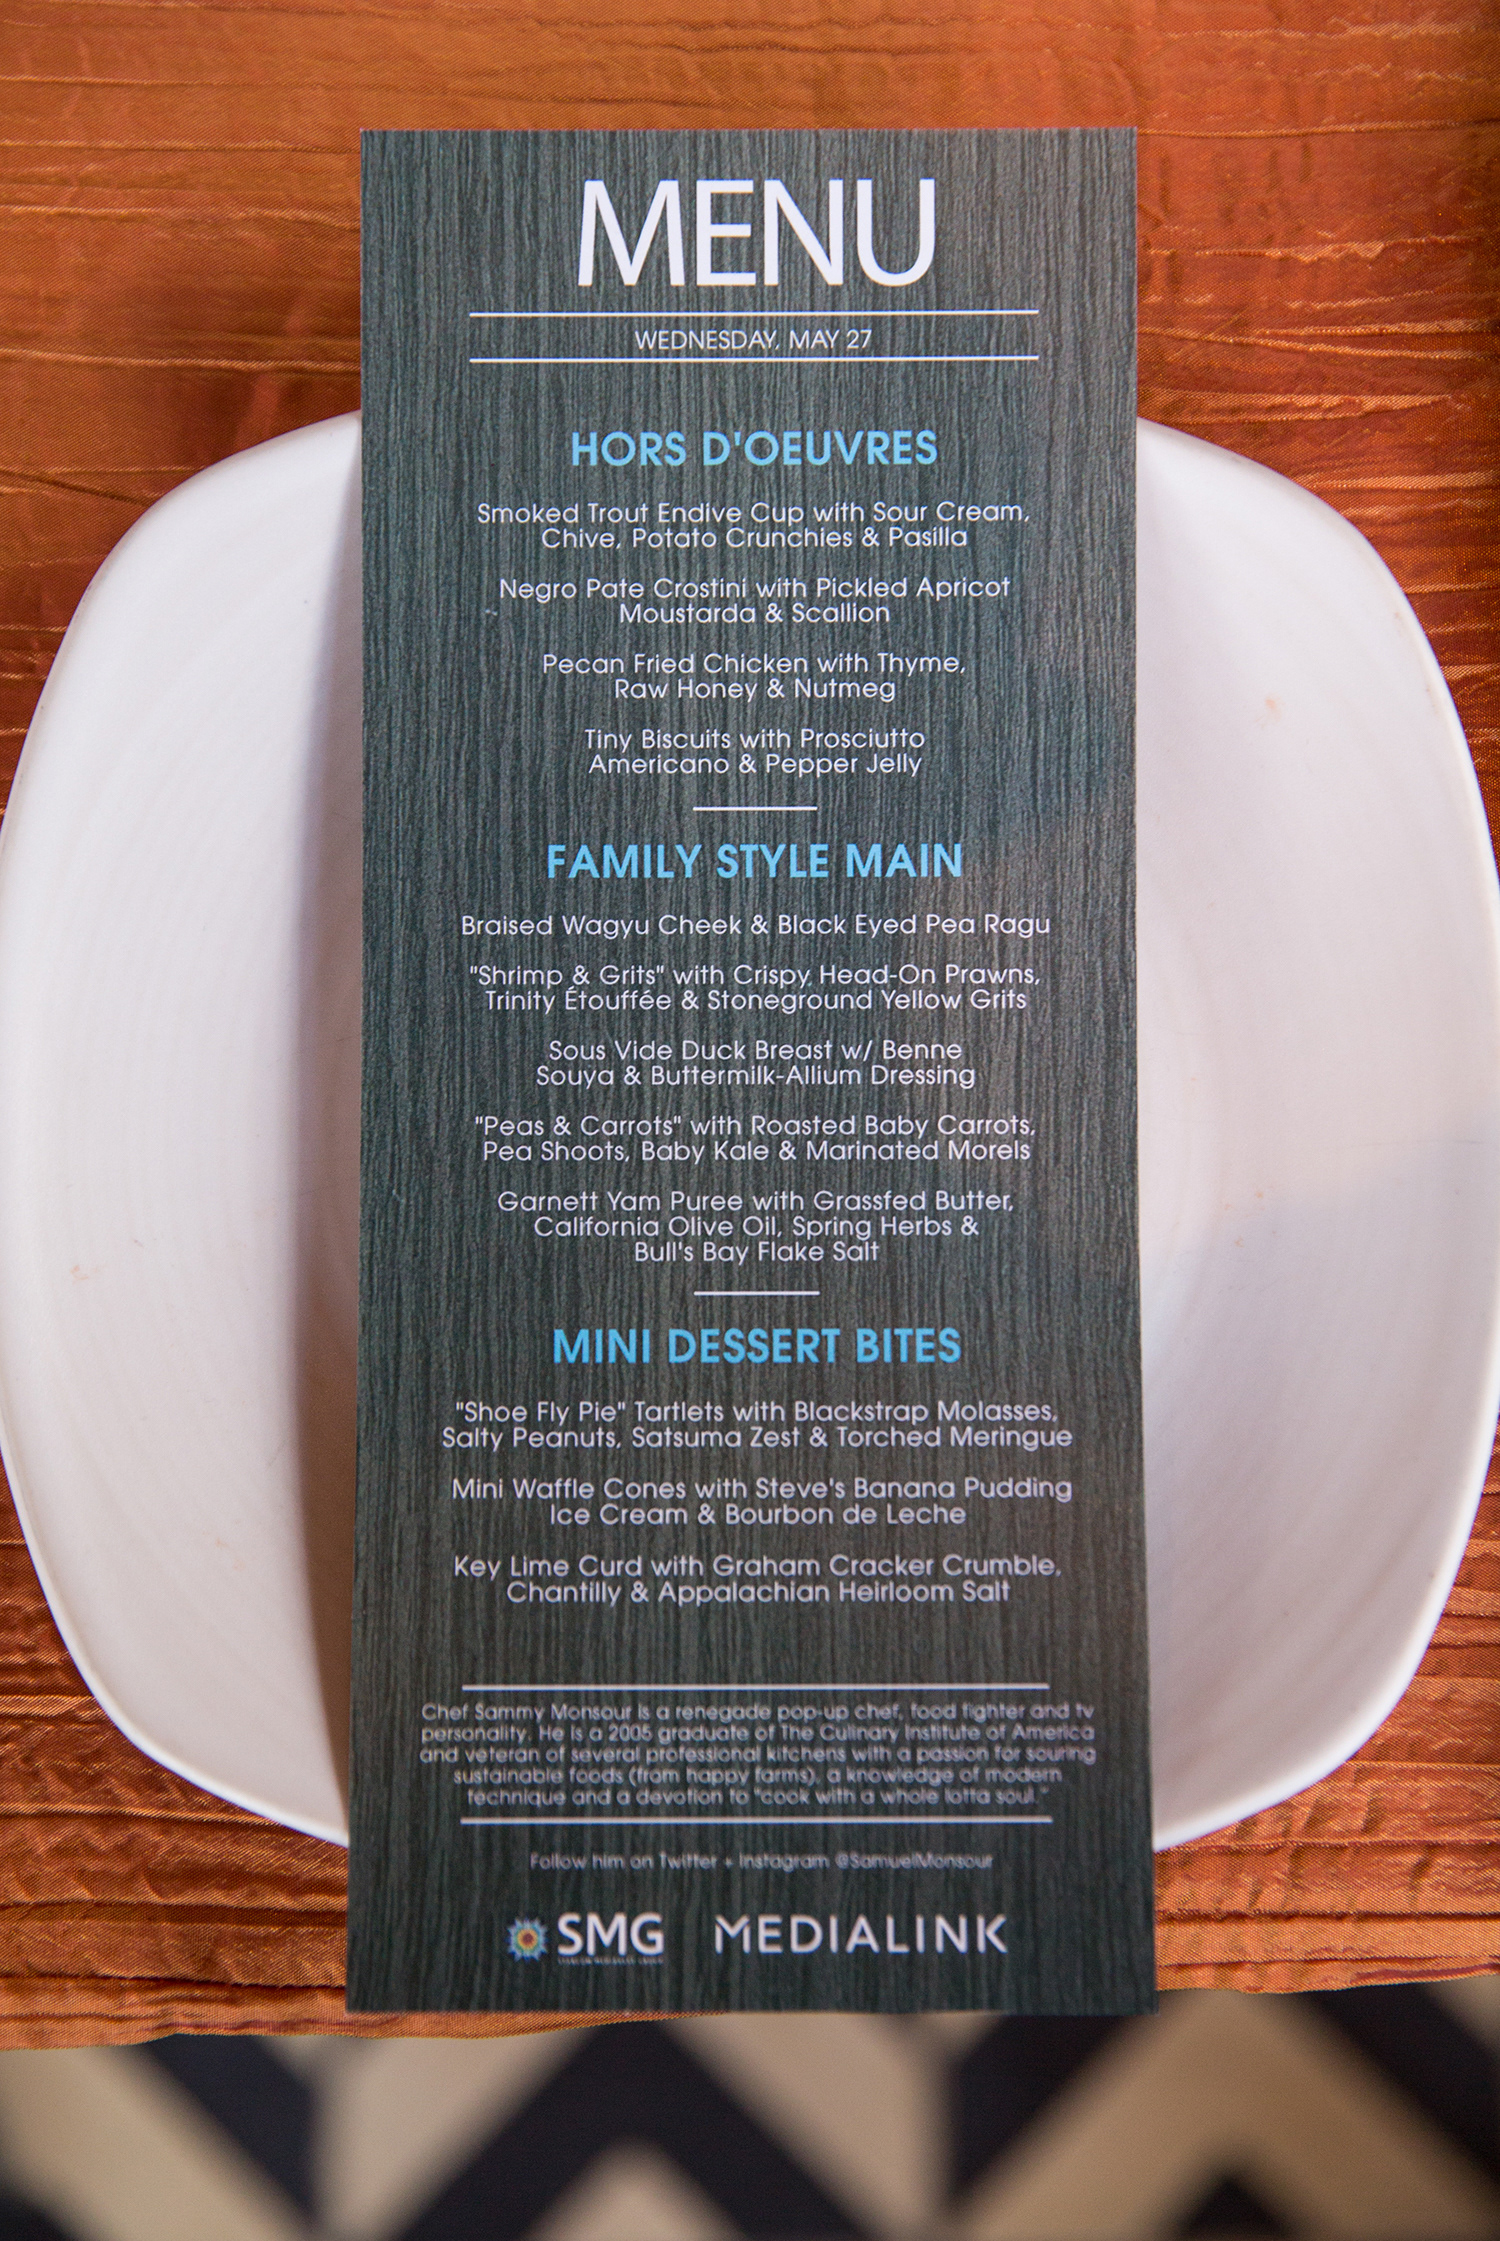 MENU
WEDNESDAY, MAY 27
HORS D'OEUVRES
Smoked Trout Endive Cup with Sour Cream,
Chive, Potato Crunchies & Pasilla
Negro Pate Crostini with Pickled Apricot
Moustarda & Scallion
Pecan Fried Chicken with Thyme,
Raw Honey & Nutmeg
Tiny Biscuits with Prosciutto
Americano & Pepper Jelly
FAMILY STYLE MAIN
Braised Wagyu Cheek & Black Eyed Pea Ragu
"Shrimp & Grits" with Crispy Head-On Prawns,
Trinity Étouffée & Stoneground Yellow Grits
Sous Vide Duck Breast w/ Benne
Souya & Buttermilk-Allium Dressing
"Peas & Carrots" with Roasted Baby Carrots,
Pea Shoots, Baby Kale & Marinated Morels
Garnett Yam Puree with Grassfed Butter,
California Olive Oil, Spring Herbs &
Bull's Bay Flake Salt
MINI DESSERT BITES
"Shoe Fly Pie" Tartlets with Blackstrap Molasses,
Salty Peanuts, Satsuma Zest & Torched Meringue
Mini Waffle Cones with Steve's Banana Pudding
Ice Cream & Bourbon de Leche
Key Lime Curd with Graham Cracker Crumble,
Chantilly & Appalachian Heirloom Salt
Chef Sammy Monsour is a renegade pop-up chef, food fighter and tv
personality. He is a 2005 graduate of The Culinary Institute of America
and veteran of several professional kitchens with a passion for souring
sustainable foods (from happy farms), a knowledge of modern
technique and a devotion to "cook with a whole lotta soul."
Follow him on Twitter + Instagram @SamuelMonsour
SMG MEDIALINK